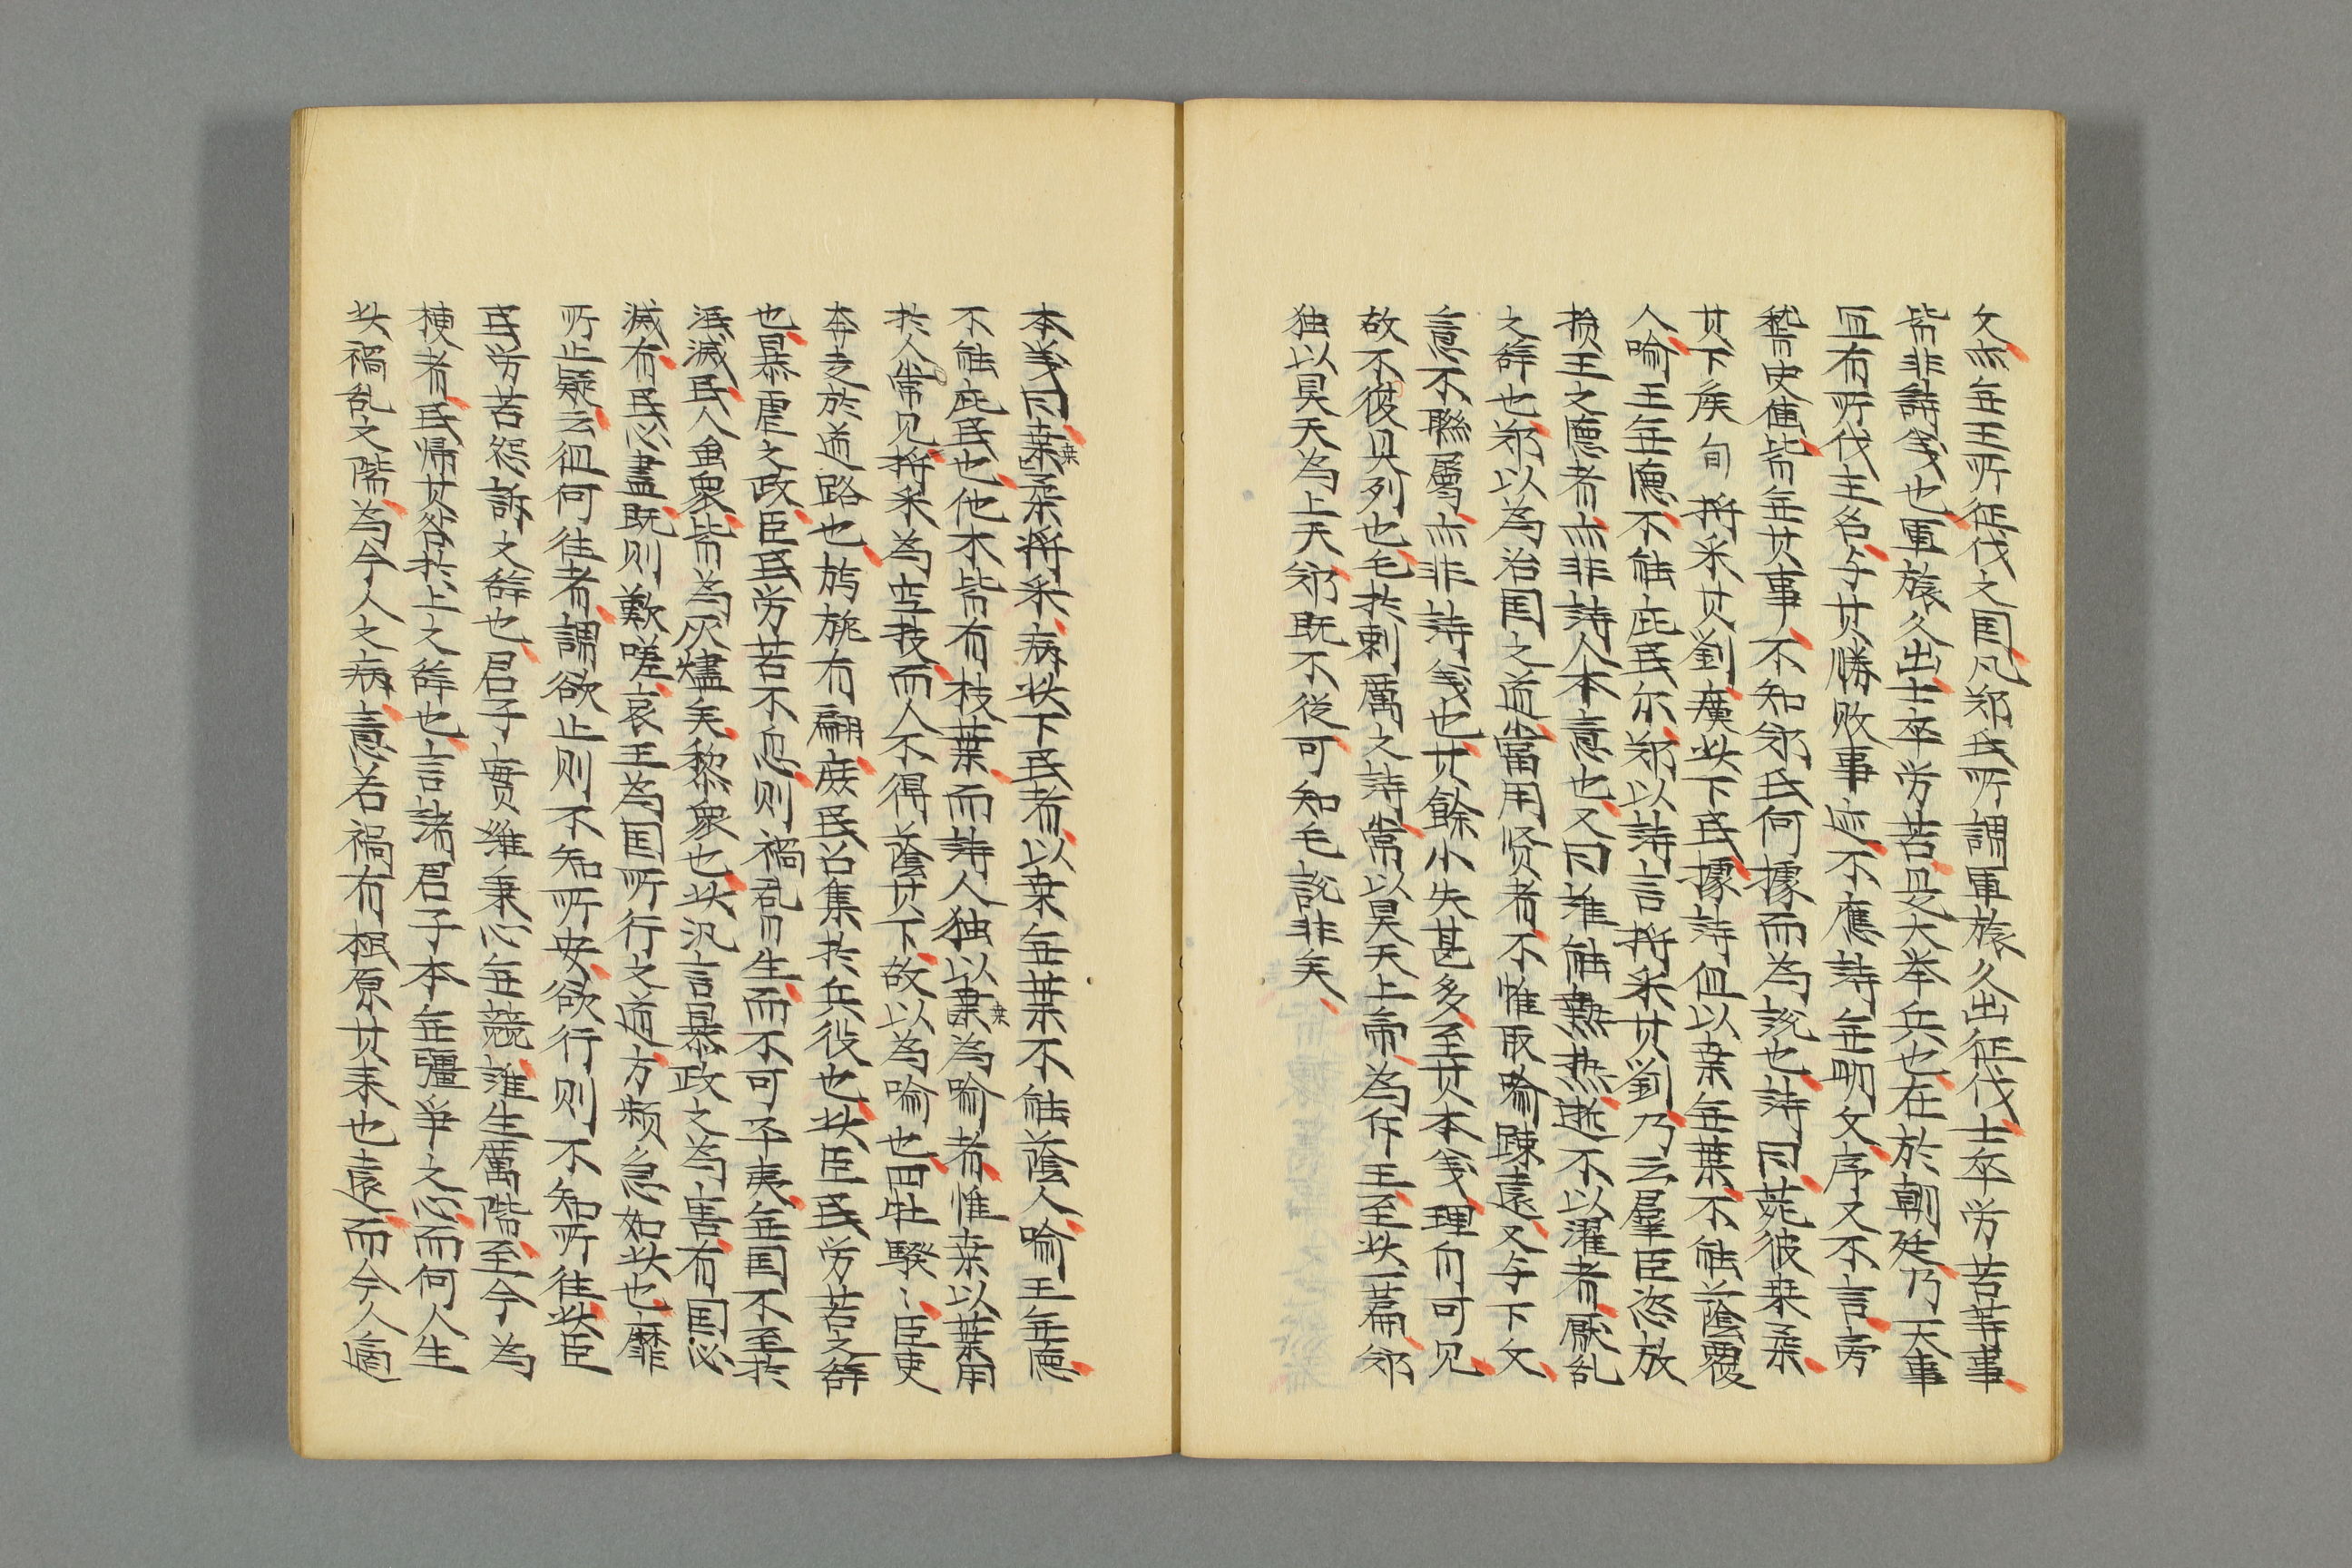 文亦無王所征伐之国凡郑氏所謂軍旅久出征伐士卒労苦等事
皆非詩義也軍旅久出士卒労苦是大举兵也在於朝廷乃大事
宜有所伐主名与其勝敗事迹不應詩無明文序又不言旁
稽史傳皆無其事不知郑氏何據而為說也詩曰菀彼桒柔
其下矦旬捋采其劉瘼此下民據詩但以桒無葉不能䕃覆
人喻王無德不能庇民尔郑以詩言捋采其劉乃云羣臣恣放
損王之德者亦非詩人本意也又曰誰能執热逝不以濯者厭乱
之辞也郑以為治国之道當用贤者不惟取喻踈遠又与下文
意不聯屬亦非詩義也其餘小失甚多至其本義理自可见
故不復具列也毛於刺厲之詩常以昊天上帝為斥王至此一篇郑
独以昊天為上天郑既不從可知毛說非矣
本義曰桒柔捋采病此下民者以桒無葉不能䕃人喻王無德
不能庇民也他木皆有枝葉而詩人独以桒為喻者惟桒以葉用
於人常见捋采為空枝而人不得䕃其下故以為喻也四牡騤〻臣吏
奔走於道路也旟旐有翩庶民召集於兵役也此臣民労苦之辞
也暴虐之政臣民労苦不息则禍乱日生而不可平夷無国不至於
泯滅民人虽衆皆為灰燼矣黎衆也此汎言暴政之為害有国必
滅有民必盡既则歎嗟哀王為国所行之道方頻急如此也靡
所止疑云徂何往者謂欲止则不知所安欲行则不知所往此臣
民労苦怨訴之辞也君子實維秉心無競誰生厲階至今為
梗者民帰其咎於上之辞也言諸君子本無彊争之心而何人生
此禍乱之階為今人之病意若禍有根原其来也遠而今人適